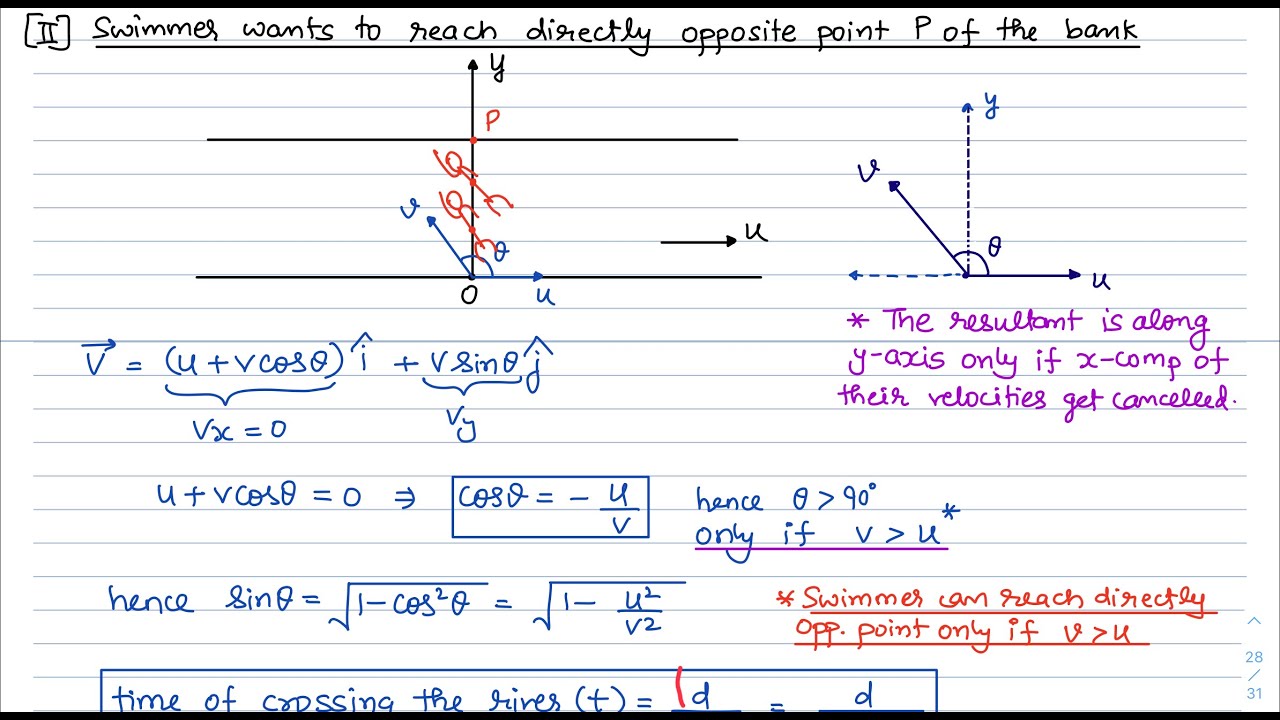 [II] Swimmer wants to reach directly opposite point P of the bank
y
P
v
θ
u
O
u
y
v
θ
u
* The resultant is along
y-axis only if x-comp of
their velocities get cancelled.
V⃗ = (u + vcosθ) î + v sinθ ĵ
Vx = 0
Vy
u + vcosθ = 0 ⇒ cosθ = - u/v
hence θ > 90°
only if v > u *
hence sinθ = √(1-cos²θ) = √(1 - u²/v²)
* Swimmer can reach directly
opp. point only if v > u
time of crossing the river (t) = d = d
28
/
31